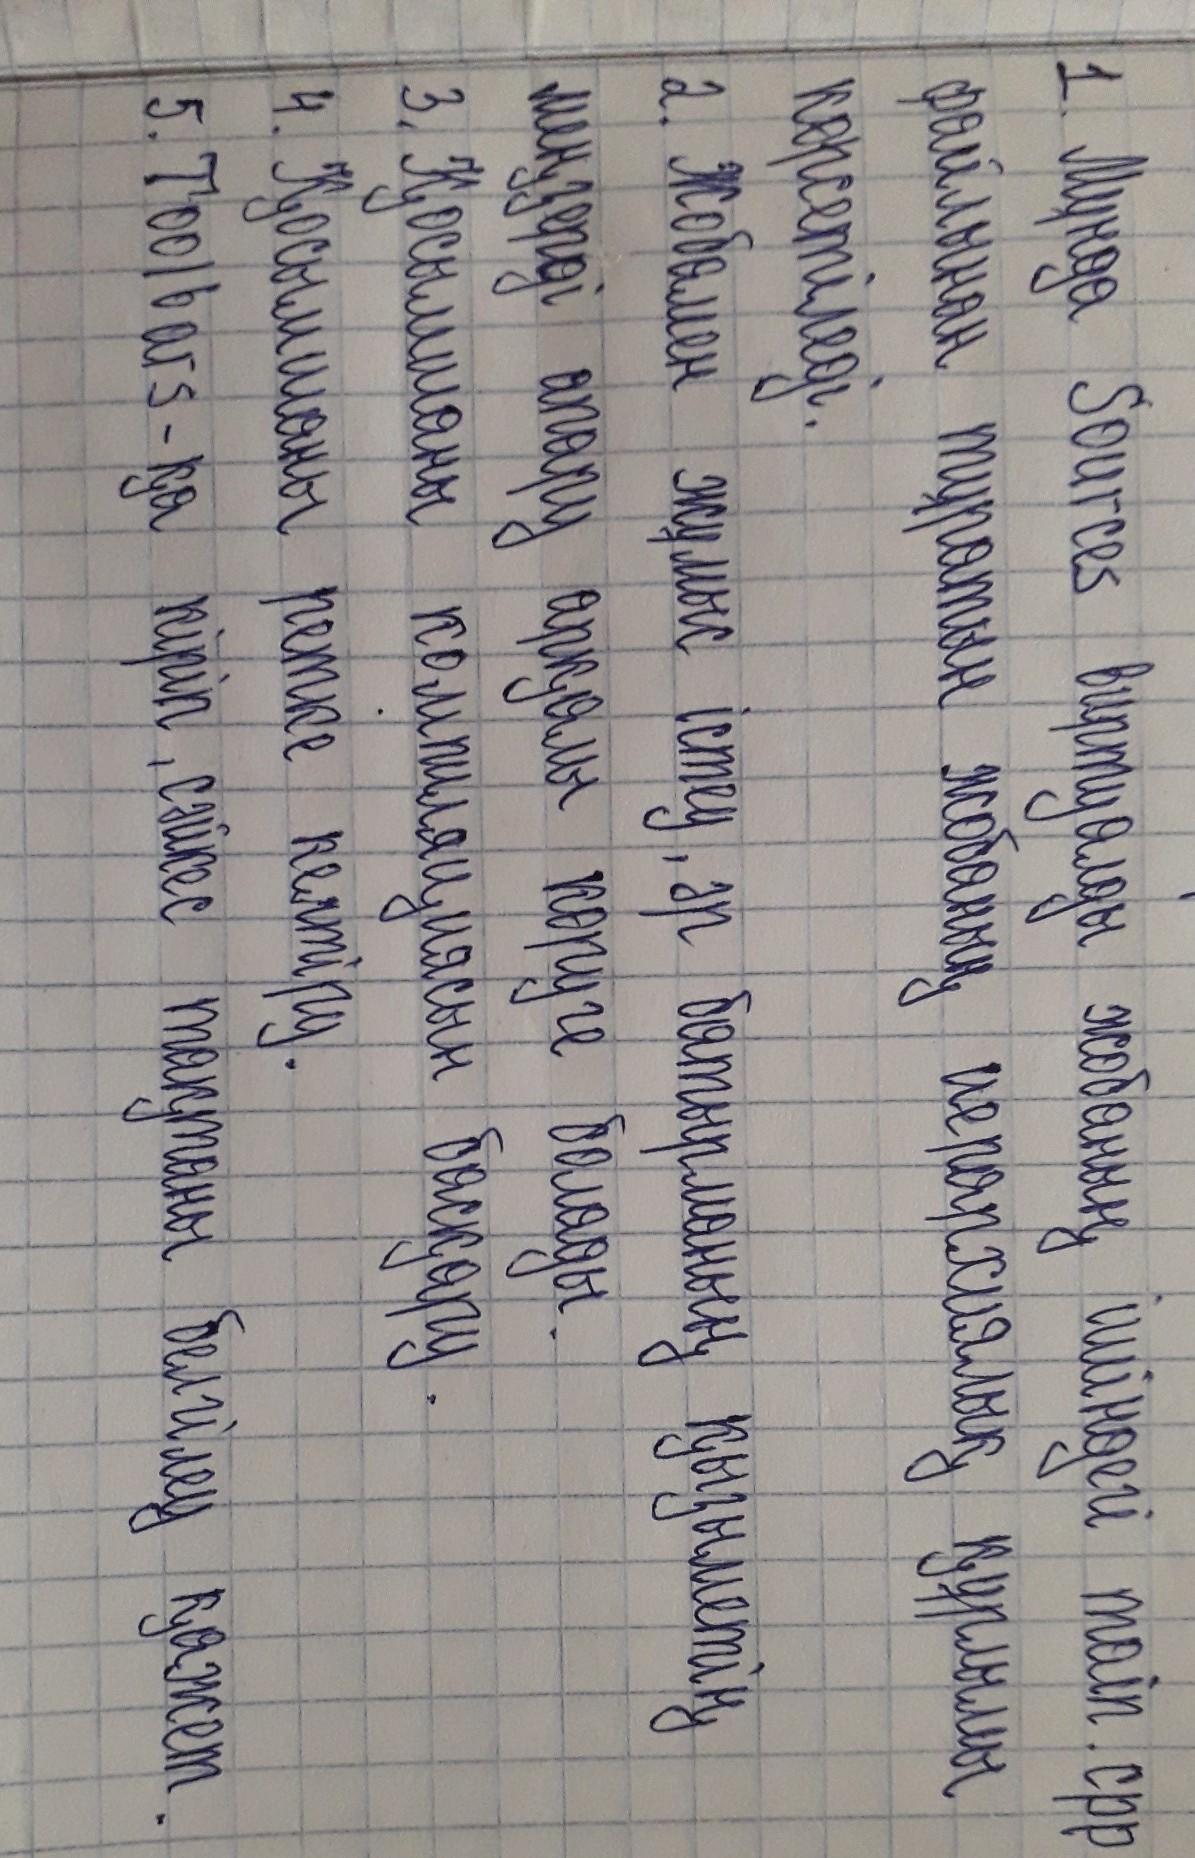 1. Мұнда Sources виртуалды жобаның ішіндегі main.cpp
файлынан тұратын жобаның иерархиялық құрылымы
көрсетіледі.
2. Жобамен жұмыс істеу, әр батырманың қызметін
меңзерді апару арқалы көруге болады.
3. Қосымшаны компиляциясын басқару.
4. Қосымшаны ретке келтіру.
5. Toolbars-қа кіріп, сәйкес тақтаны белгілеу қажет.